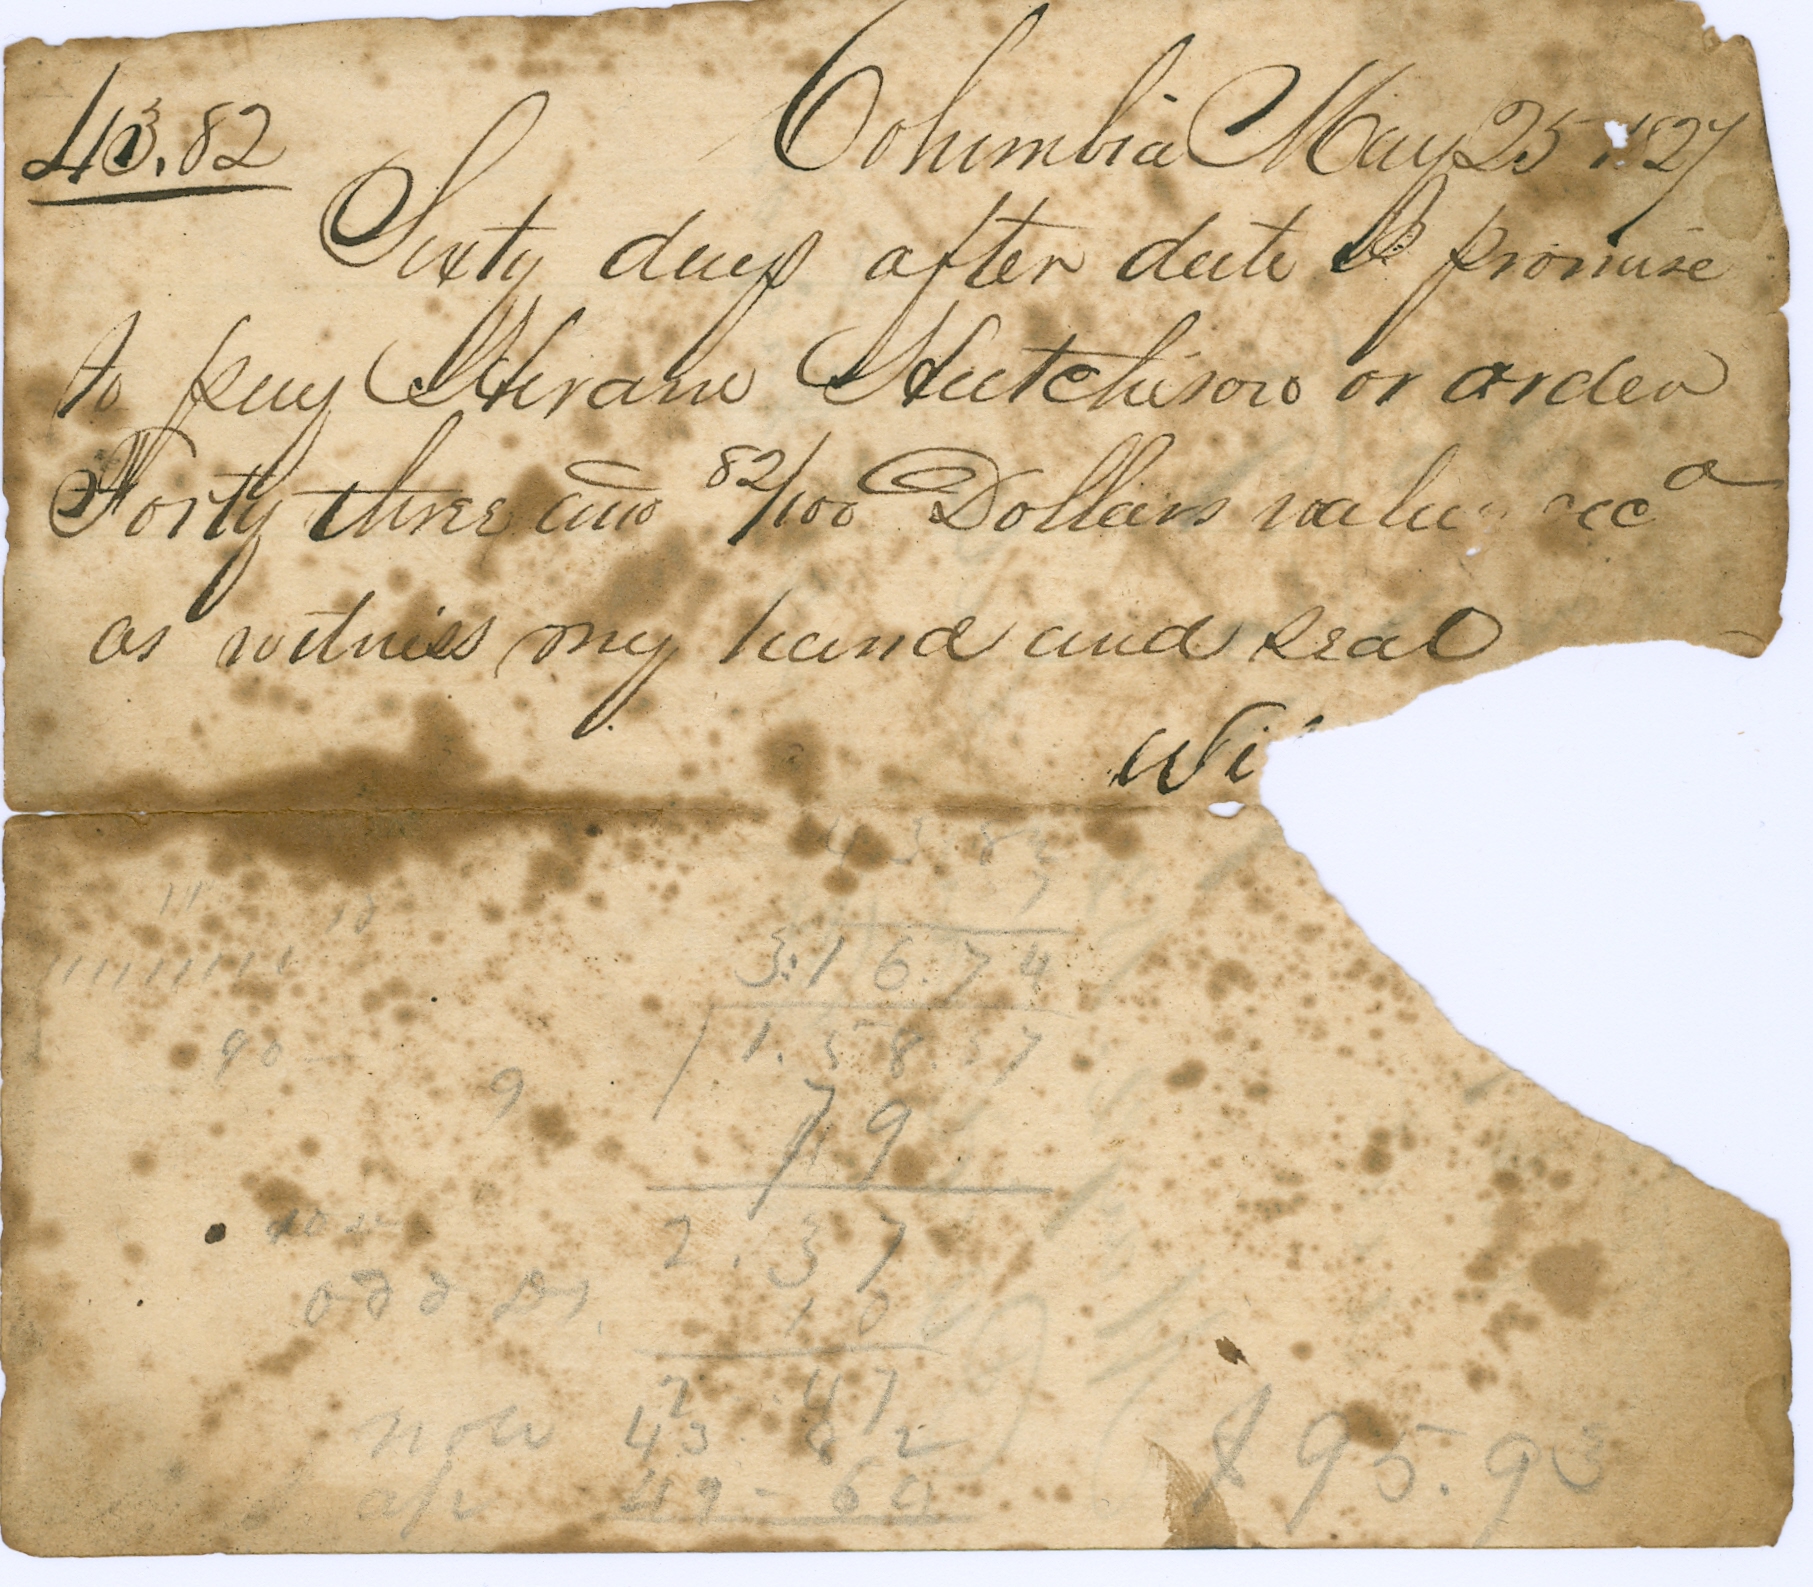 43.82 Columbia May 25 1827
Sixty days after date I promise
to pay Hiram Hutchison or order
Forty three and 82/100 Dollars value recd
as witness my hand and seal
Wi
43.82
7
3.16.74
1.58.37
79
9
90
2.37
odd Ds.
10
2-47
note 43 82
a/c 49-64
$95.93